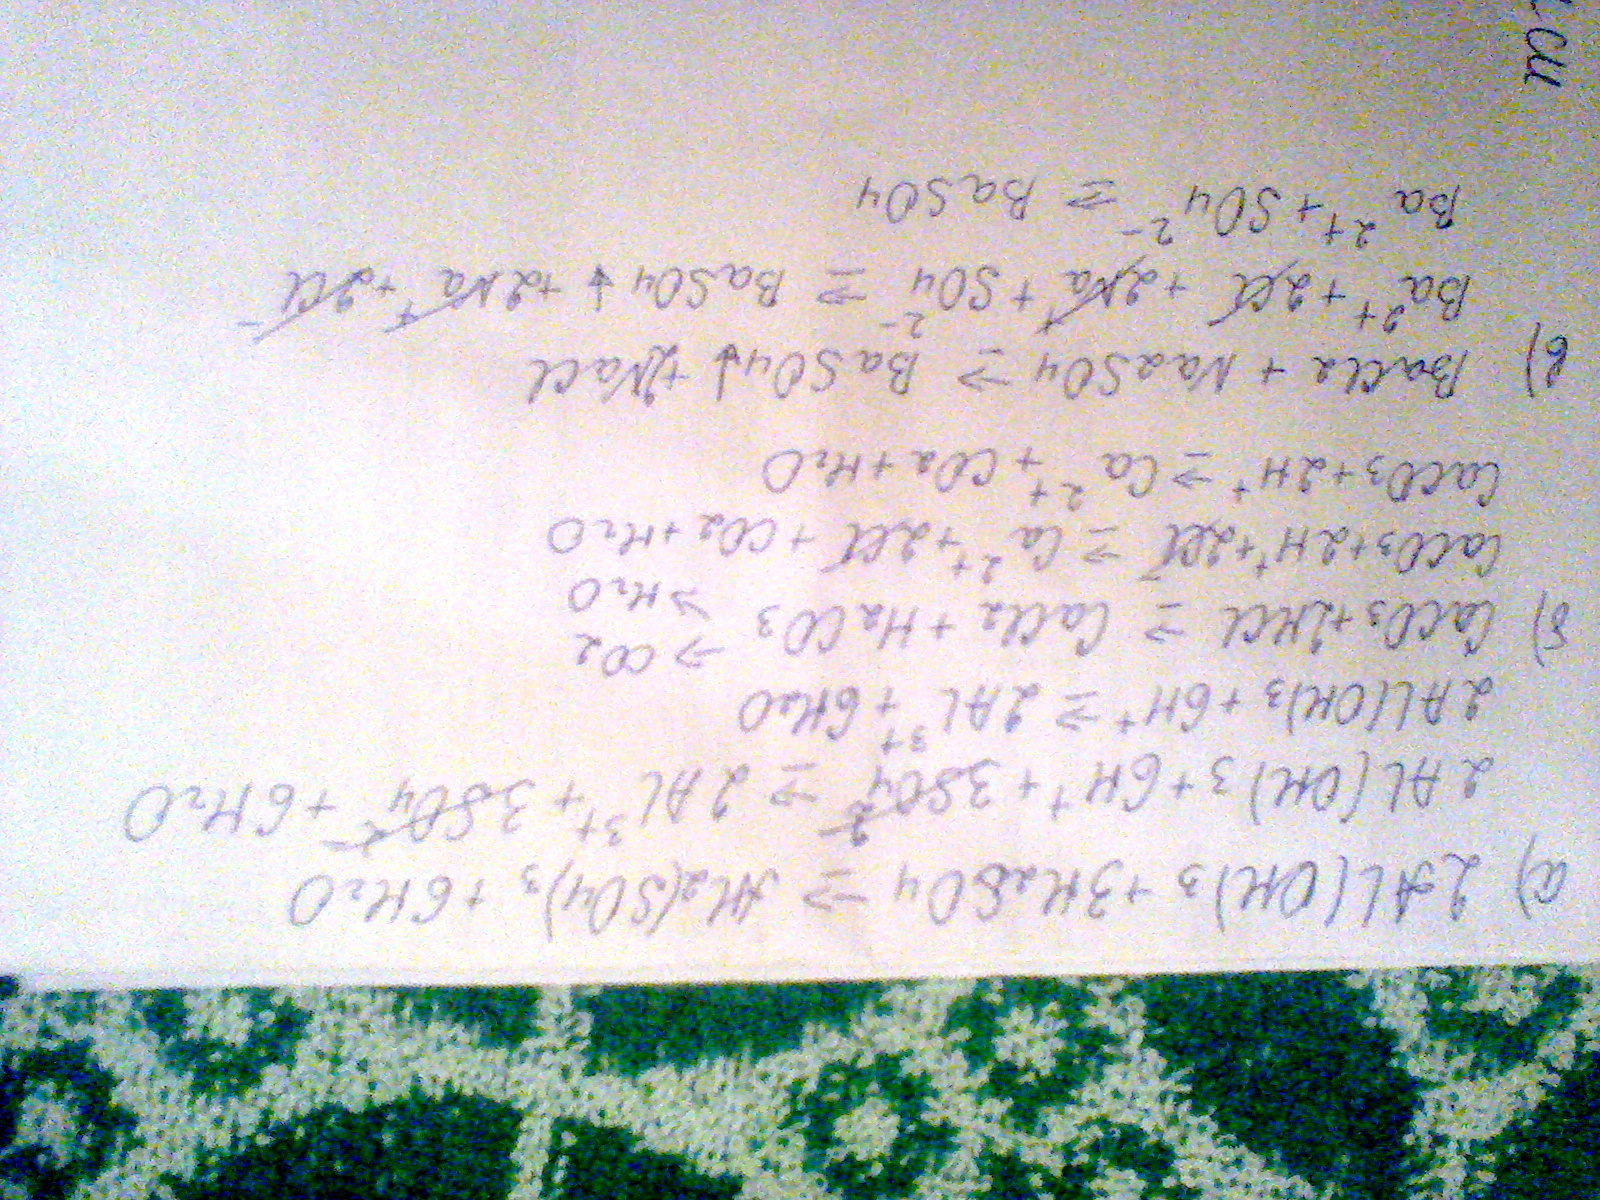 а) 2Al(OH)3 + 3H2SO4 ⇒ Al2(SO4)3 + 6H2O
2Al(OH)3 + 6H⁺ + 3SO4²⁻ ⇒ 2Al³⁺ + 3SO4²⁻ + 6H2O
2Al(OH)3 + 6H⁺ ⇒ 2Al³⁺ + 6H2O
б) CaCO3 + 2HCl ⇒ CaCl2 + H2CO3 → CO2
→ H2O
CaCO3 + 2H⁺ + 2Cl⁻ ⇒ Ca²⁺ + 2Cl⁻ + CO2 + H2O
CaCO3 + 2H⁺ ⇒ Ca²⁺ + CO2 + H2O
в) BaCl2 + Na2SO4 ⇒ BaSO4↓ + 2NaCl
Ba²⁺ + 2Cl⁻ + 2Na⁺ + SO4²⁻ ⇒ BaSO4↓ + 2Na⁺ + 2Cl⁻
Ba²⁺ + SO4²⁻ ⇒ BaSO4